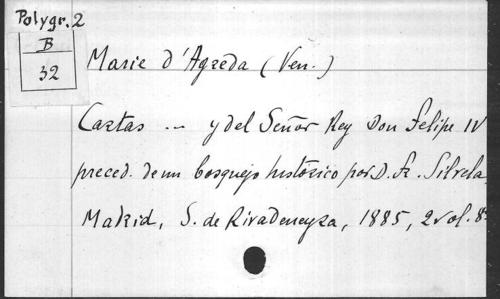 Polygr. 2
B
32
Marie d'Agreda (Ven.)
Cartas ... y del Señor Rey Don Felipe IV
preced. de un bosquejo histórico por D. Fr. Silvela.
Madrid, S. de Rivadeneyra, 1885, 2 vol. 8º